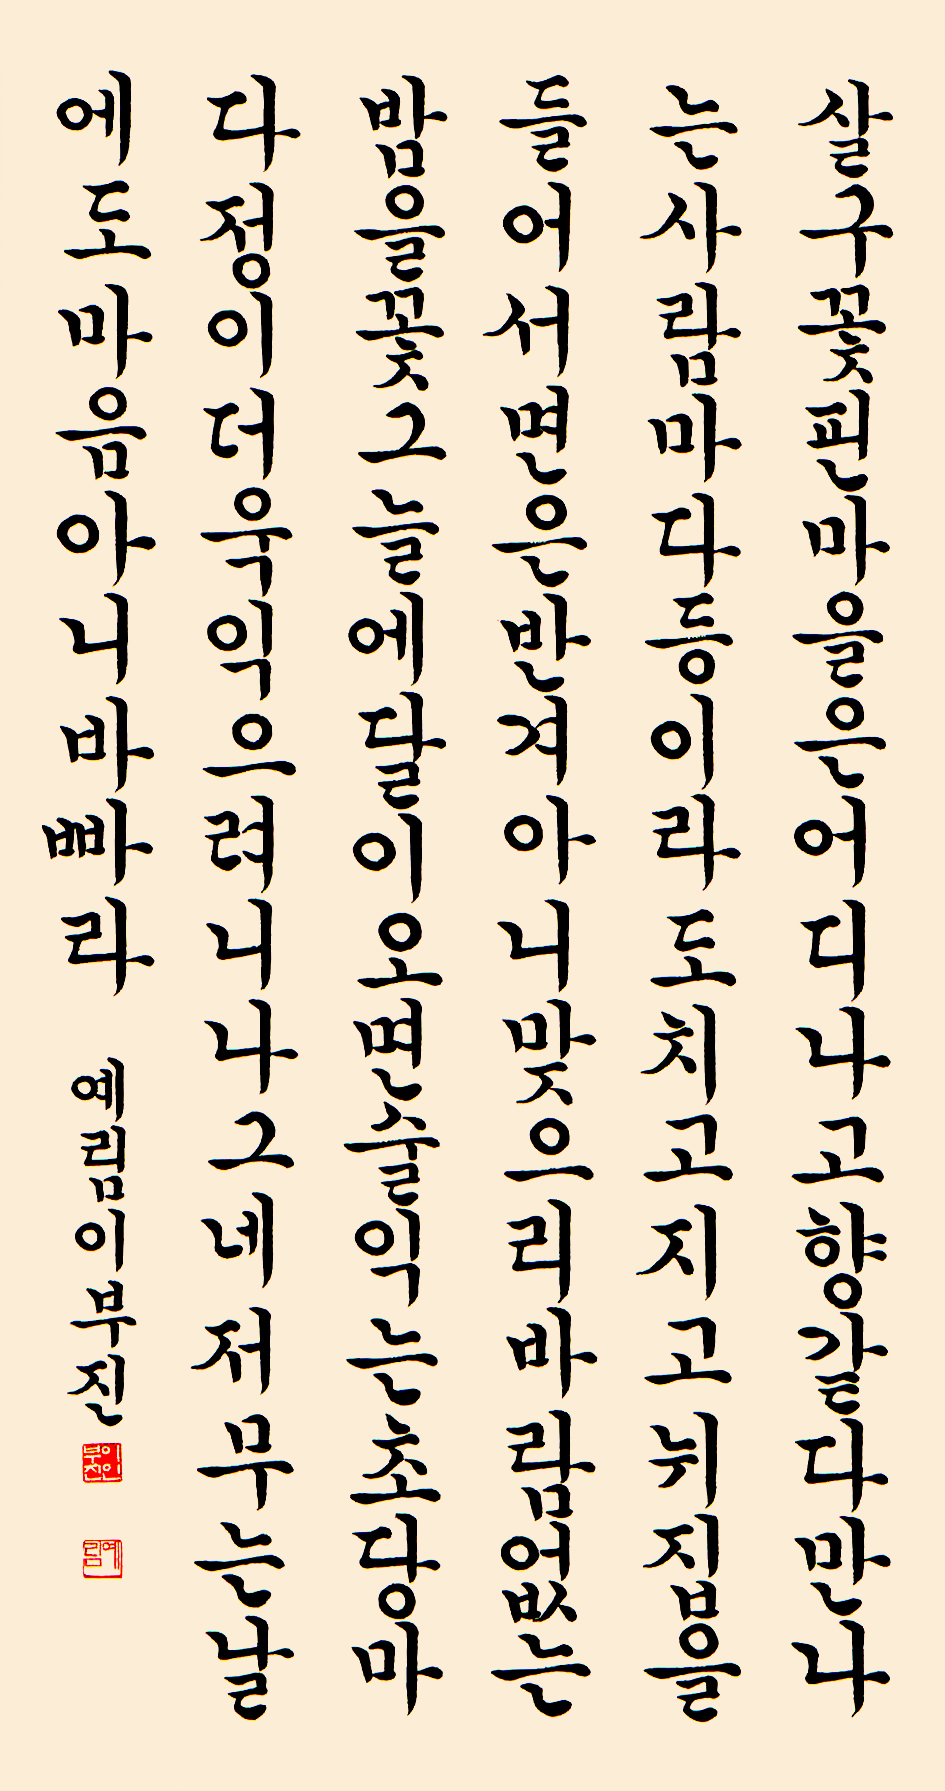 살구꽃핀마을은어디나고향같다만나
는사람마다등이라도치고지고뉘집을
들어서면은반겨아니맞으리바람없는
밤을꽃그늘에달이오면술익는초당마
다정이더욱익으려니나그네저무는날
에도마음아니바빠라
예림이부진